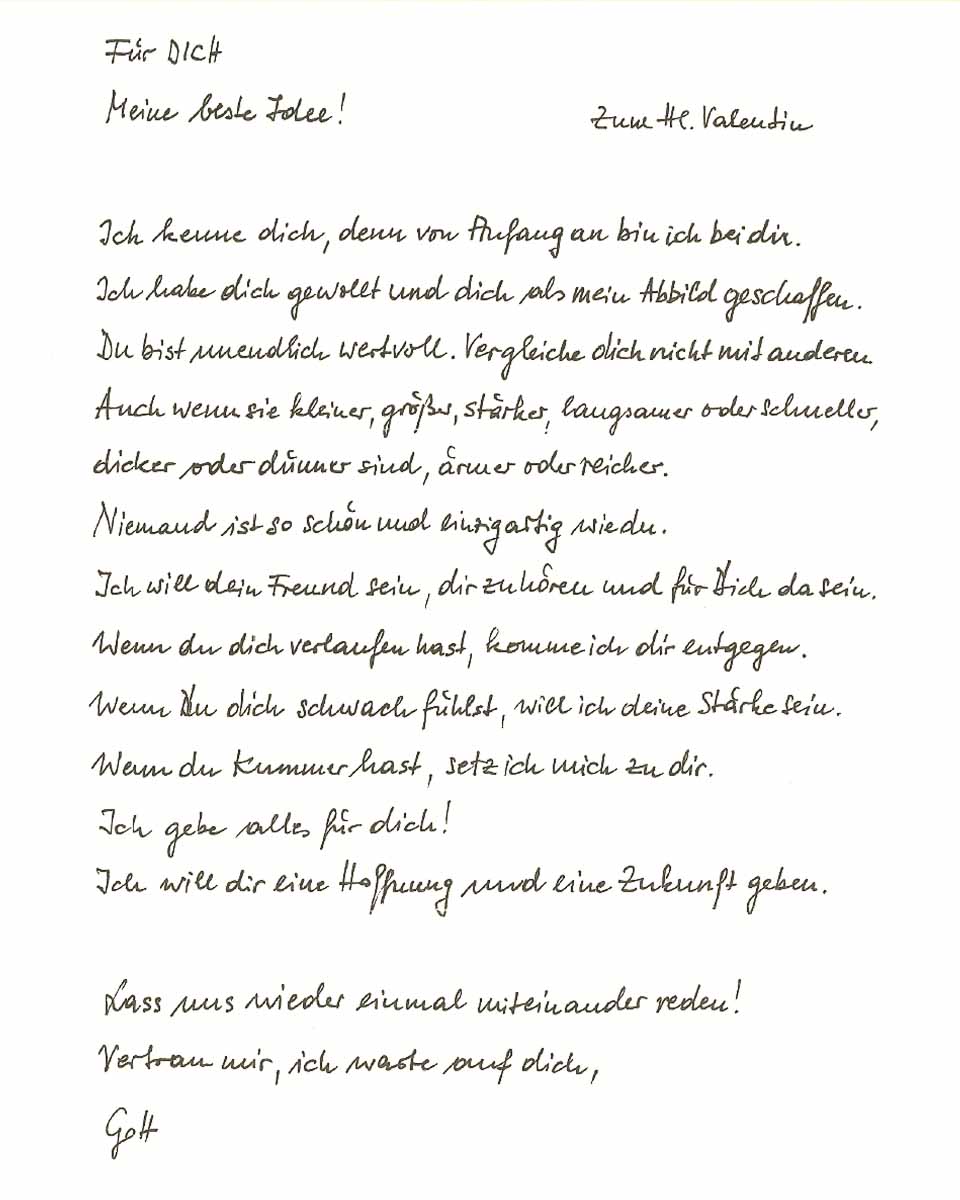 Für DICH
Meine beste Idee!
Zum Hl. Valentin
Ich kenne dich, denn von Anfang an bin ich bei dir.
Ich habe dich gewollt und dich als mein Abbild geschaffen.
Du bist unendlich wertvoll. Vergleiche dich nicht mit anderen
Auch wenn sie kleiner, größer, stärker, langsamer oder schneller,
dicker oder dünner sind, ärmer oder reicher.
Niemand ist so schön und einzigartig wie du.
Ich will dein Freund sein, dir zuhören und für Dich da sein.
Wenn du dich verlaufen hast, komme ich dir entgegen.
Wenn Du dich schwach fühlst, will ich deine Stärke sein.
Wenn du Kummer hast, setz ich mich zu dir.
Ich gebe alles für dich!
Ich will dir eine Hoffnung und eine Zukunft geben.
Lass uns wieder einmal miteinander reden!
Vertrau mir, ich warte auf dich,
Gott